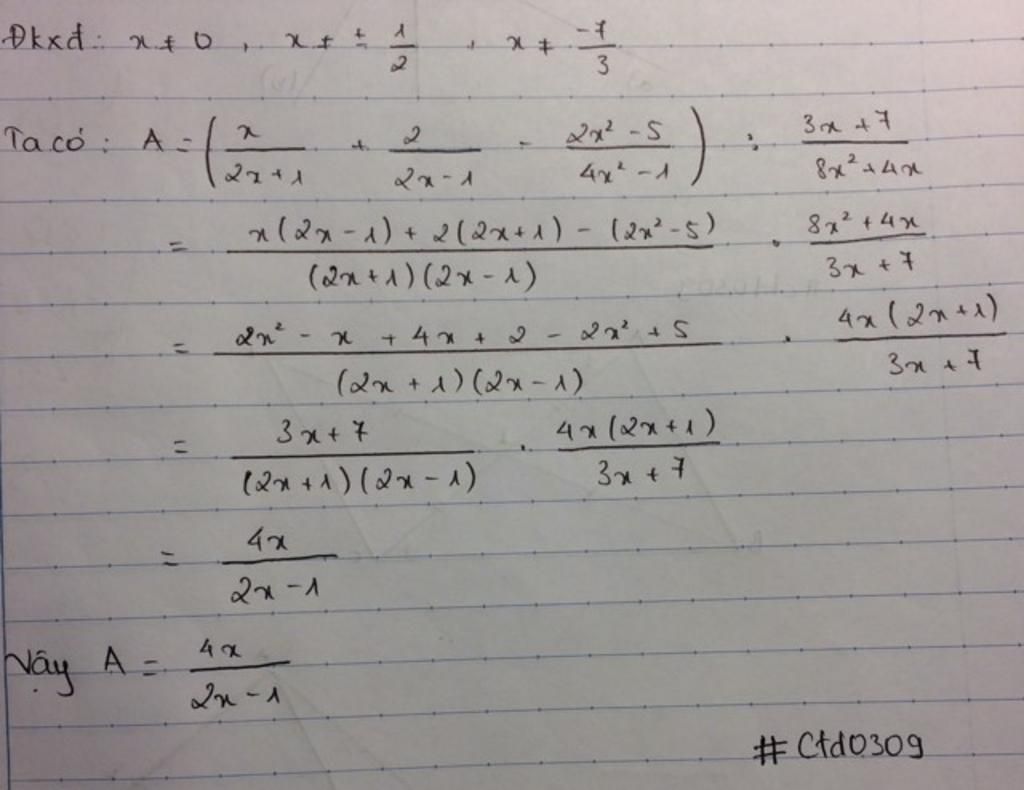 Đkxđ: x ≠ 0 , x ≠ ± 1/2 , x ≠ -7/3
Ta có: A = (x/(2x+1) + 2/(2x-1) - (2x² - 5)/(4x² - 1)) : (3x + 7)/(8x² + 4x)
= (x(2x - 1) + 2(2x+1) - (2x² - 5))/((2x+1)(2x - 1)) . (8x² + 4x)/(3x + 7)
= (2x² - x + 4x + 2 - 2x² + 5)/((2x + 1)(2x - 1)) . (4x(2x+1))/(3x + 7)
= (3x + 7)/((2x+1)(2x - 1)) . (4x(2x+1))/(3x + 7)
= 4x/(2x - 1)
Vậy A = 4x/(2x - 1)
# Ctd0309